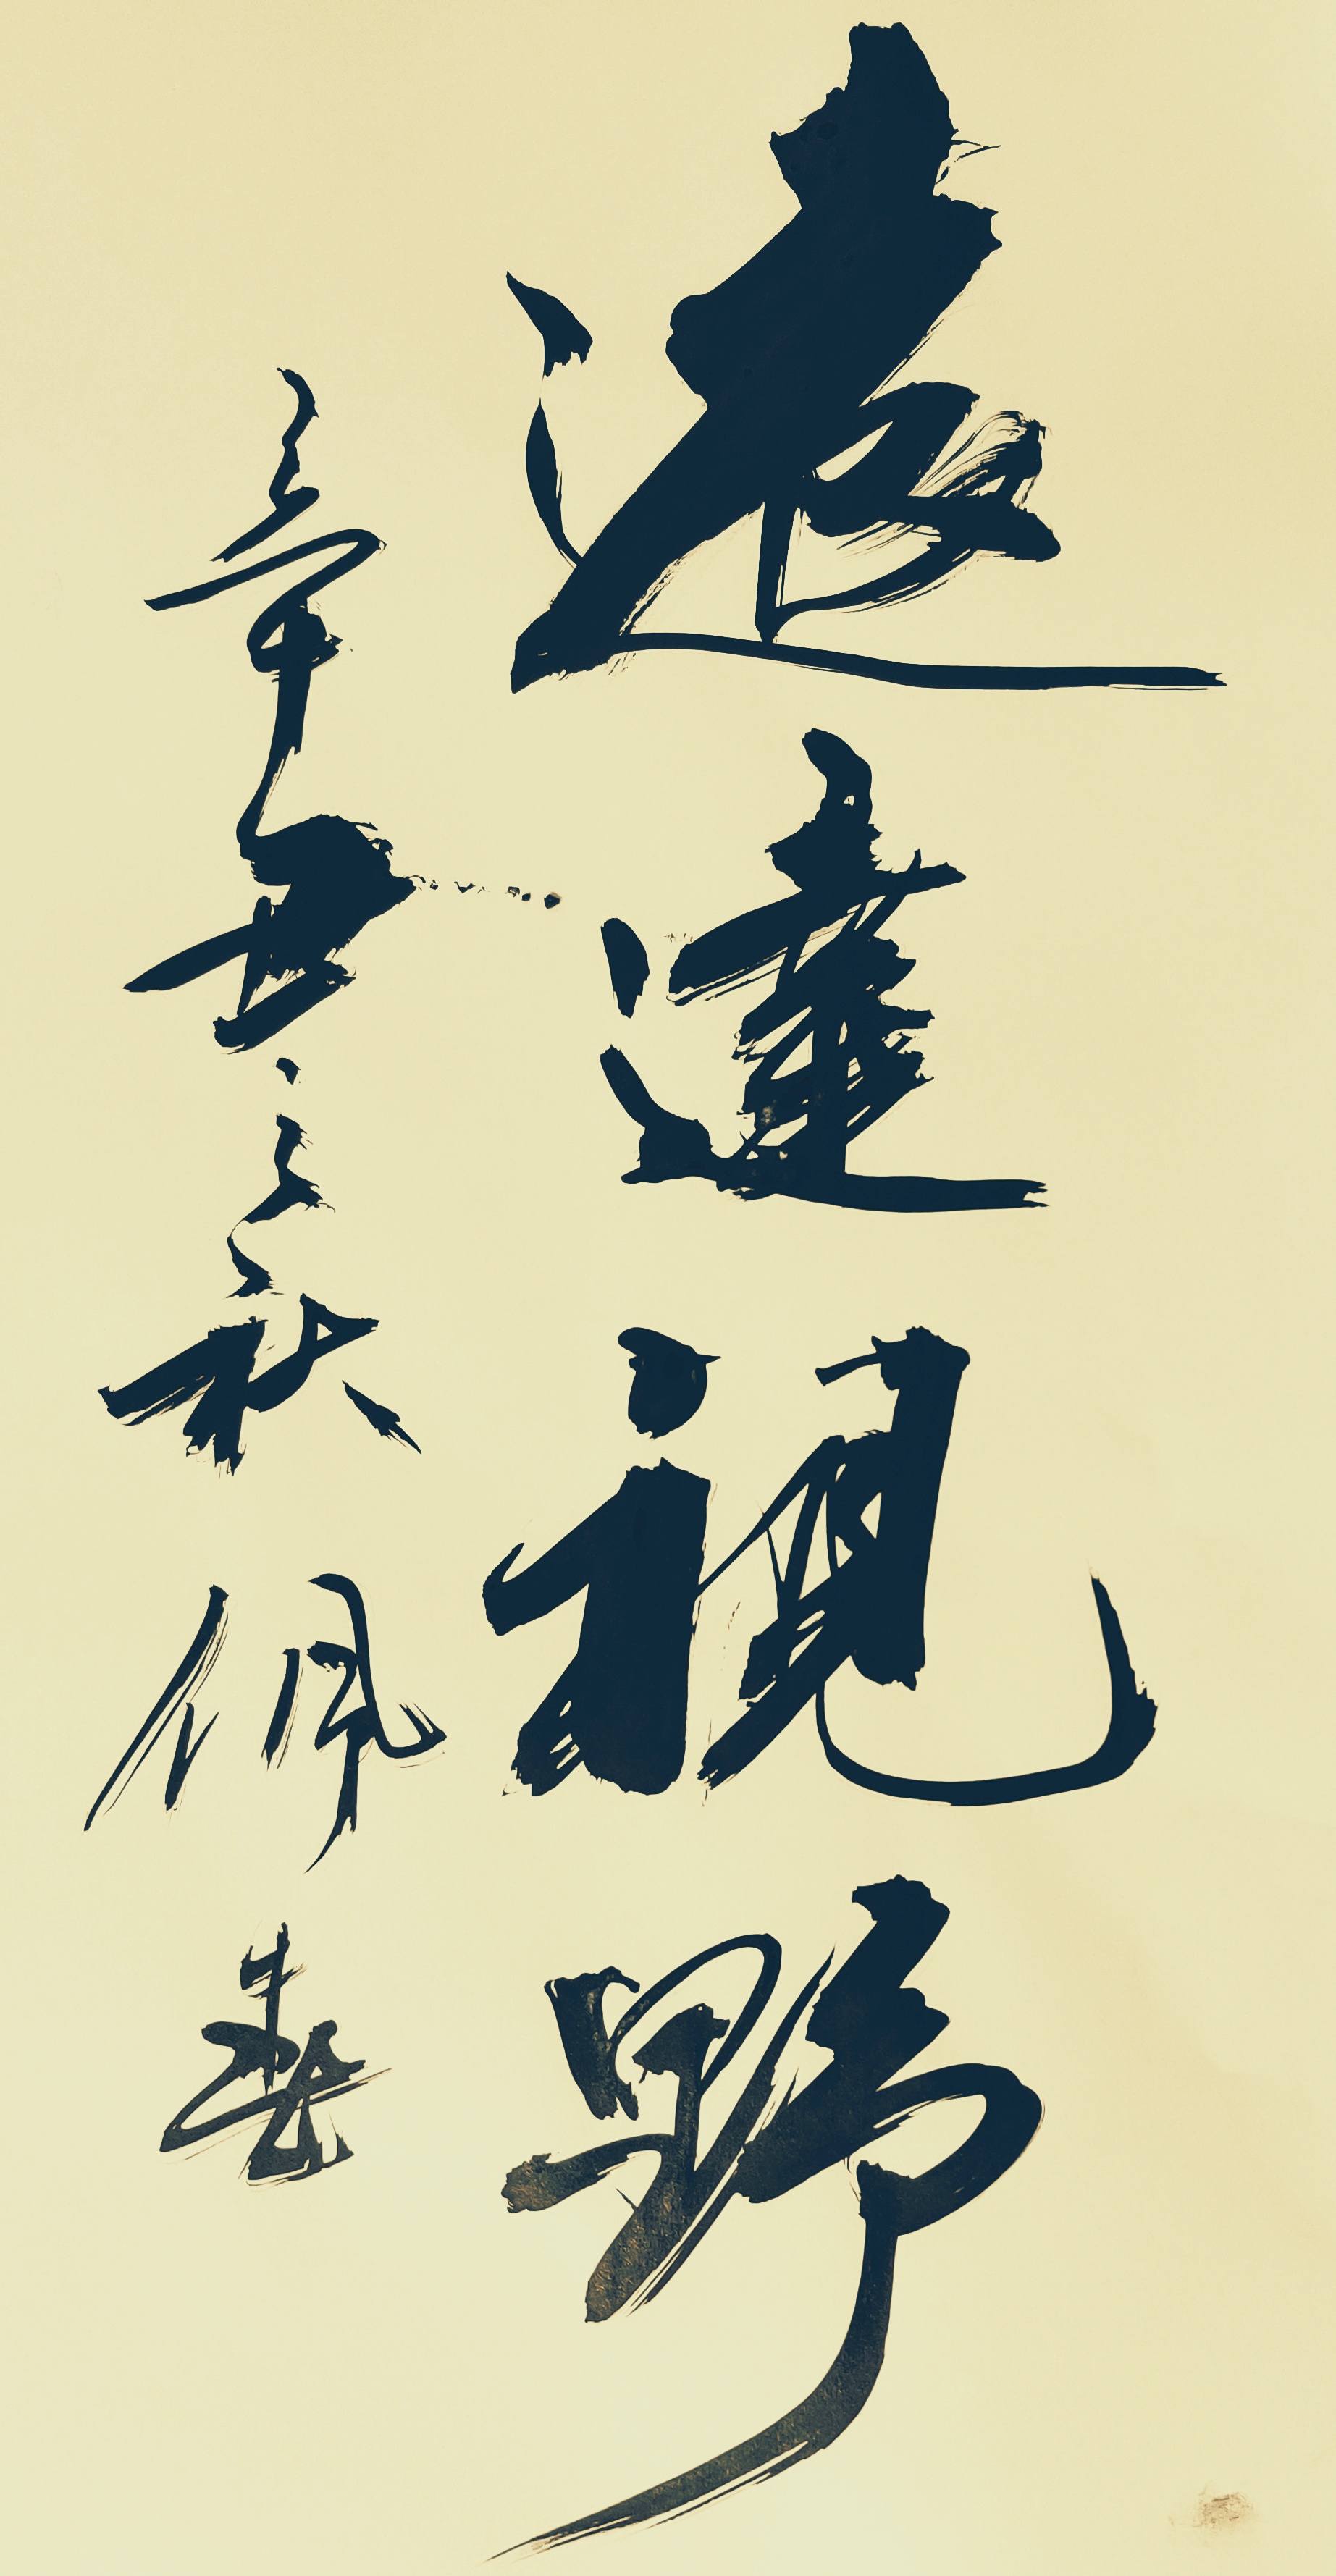 遠達視野
辛丑之秋 佩春